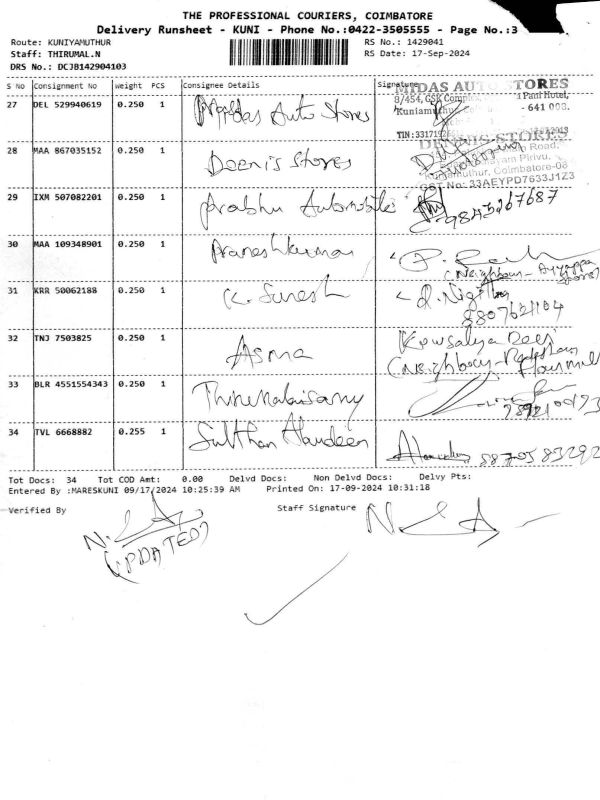 THE PROFESSIONAL COURIERS, COIMBATORE
Delivery Runsheet - KUNI - Phone No.:0422-3505555 - Page No.:3
Route: KUNIYAMUTHUR
RS No.: 1429041
Staff: THIRUMAL.N
RS Date: 17-Sep-2024
DRS No.: DCJB142904103
S No Consignment No Weight PCS Consignee Details Signature
MIDAS AUTO STORES
8/454, GSK Complex, Paul Hotel,
Kuniamuthur - 641 008.
27 DEL 529940619 0.250 1 Midas Auto Stores
TIN:
DENNIS STORES
Road,
28 MAA 867035152 0.250 1 Deenis Stores
Pirivu,
Kuniamuthur, Coimbatore-08
GST No: 33AEYPD7633J1Z3
29 IXM 507082201 0.250 1 Prabhu Automobile 9843267687
30 MAA 109348901 0.250 1 Praneshkumar
(Neighbour - Ayyappa
31 KRR 50062188 0.250 1 K. Suresh
8807621104
32 TNJ 7503825 0.250 1 Asma Kowsalya Devi
33 BLR 4551554343 0.250 1 Thirumalaisamy
34 TVL 6668882 0.255 1 Sulthan Alaudeen 8870583292
Tot Docs: 34 Tot COD Amt: 0.00 Delvd Docs: Non Delvd Docs: Delvy Pts:
Entered By :MARESKUNI 09/17/2024 10:25:39 AM Printed On: 17-09-2024 10:31:18
Verified By
Staff Signature
(UPDATED)